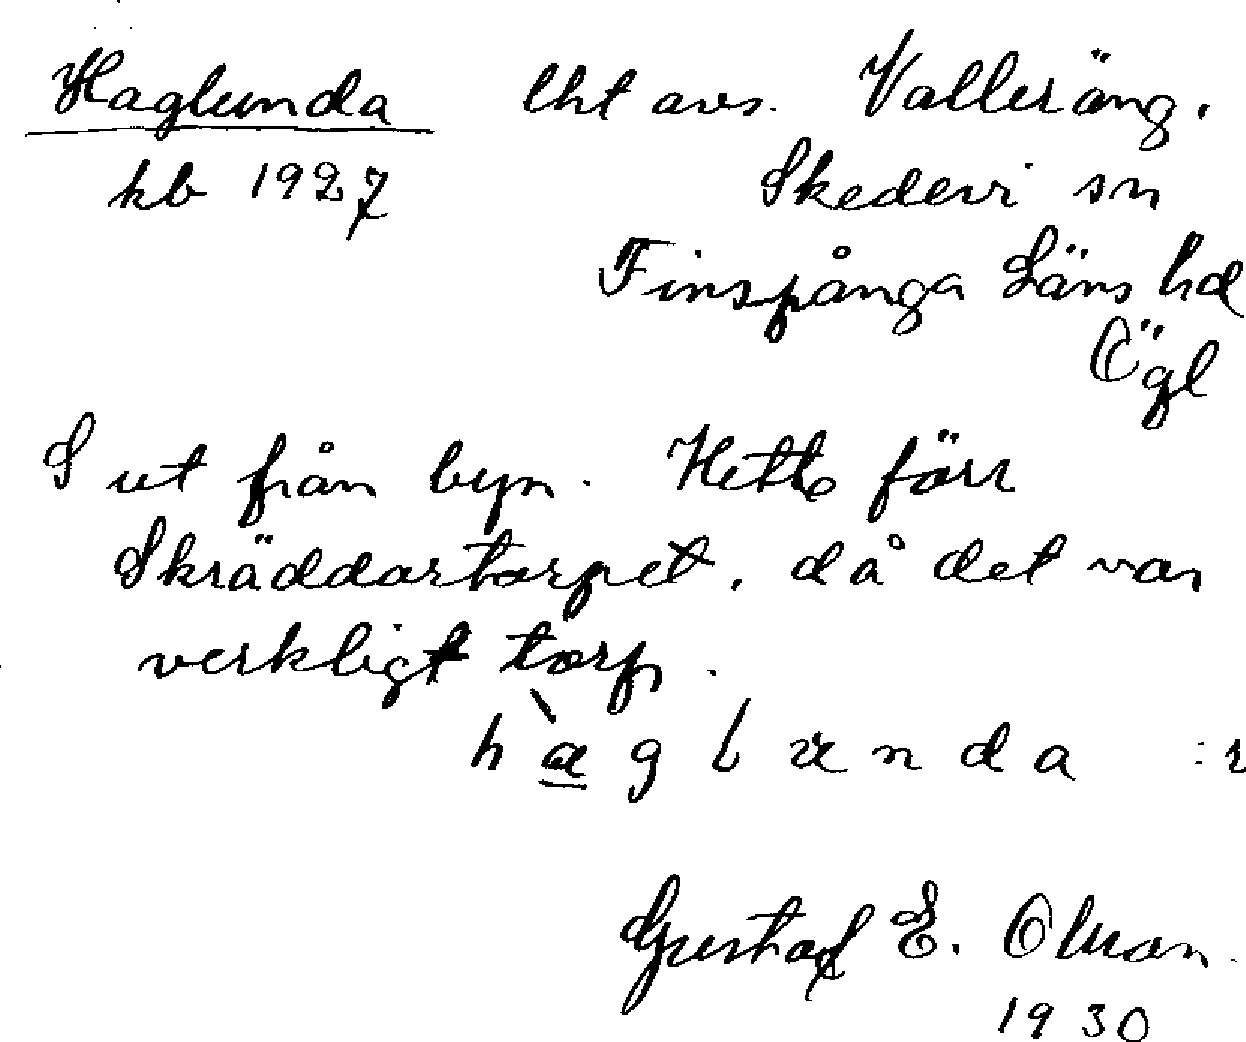 Haglunda lht avs. Valleräng.
kb 1927 Skedevi sn
Finspånga Läns hd
Ögl
S ut från byn. Hette förr
Skräddartorpet, då det var
verkligt torp.
Gustaf E. Olsson.
1930